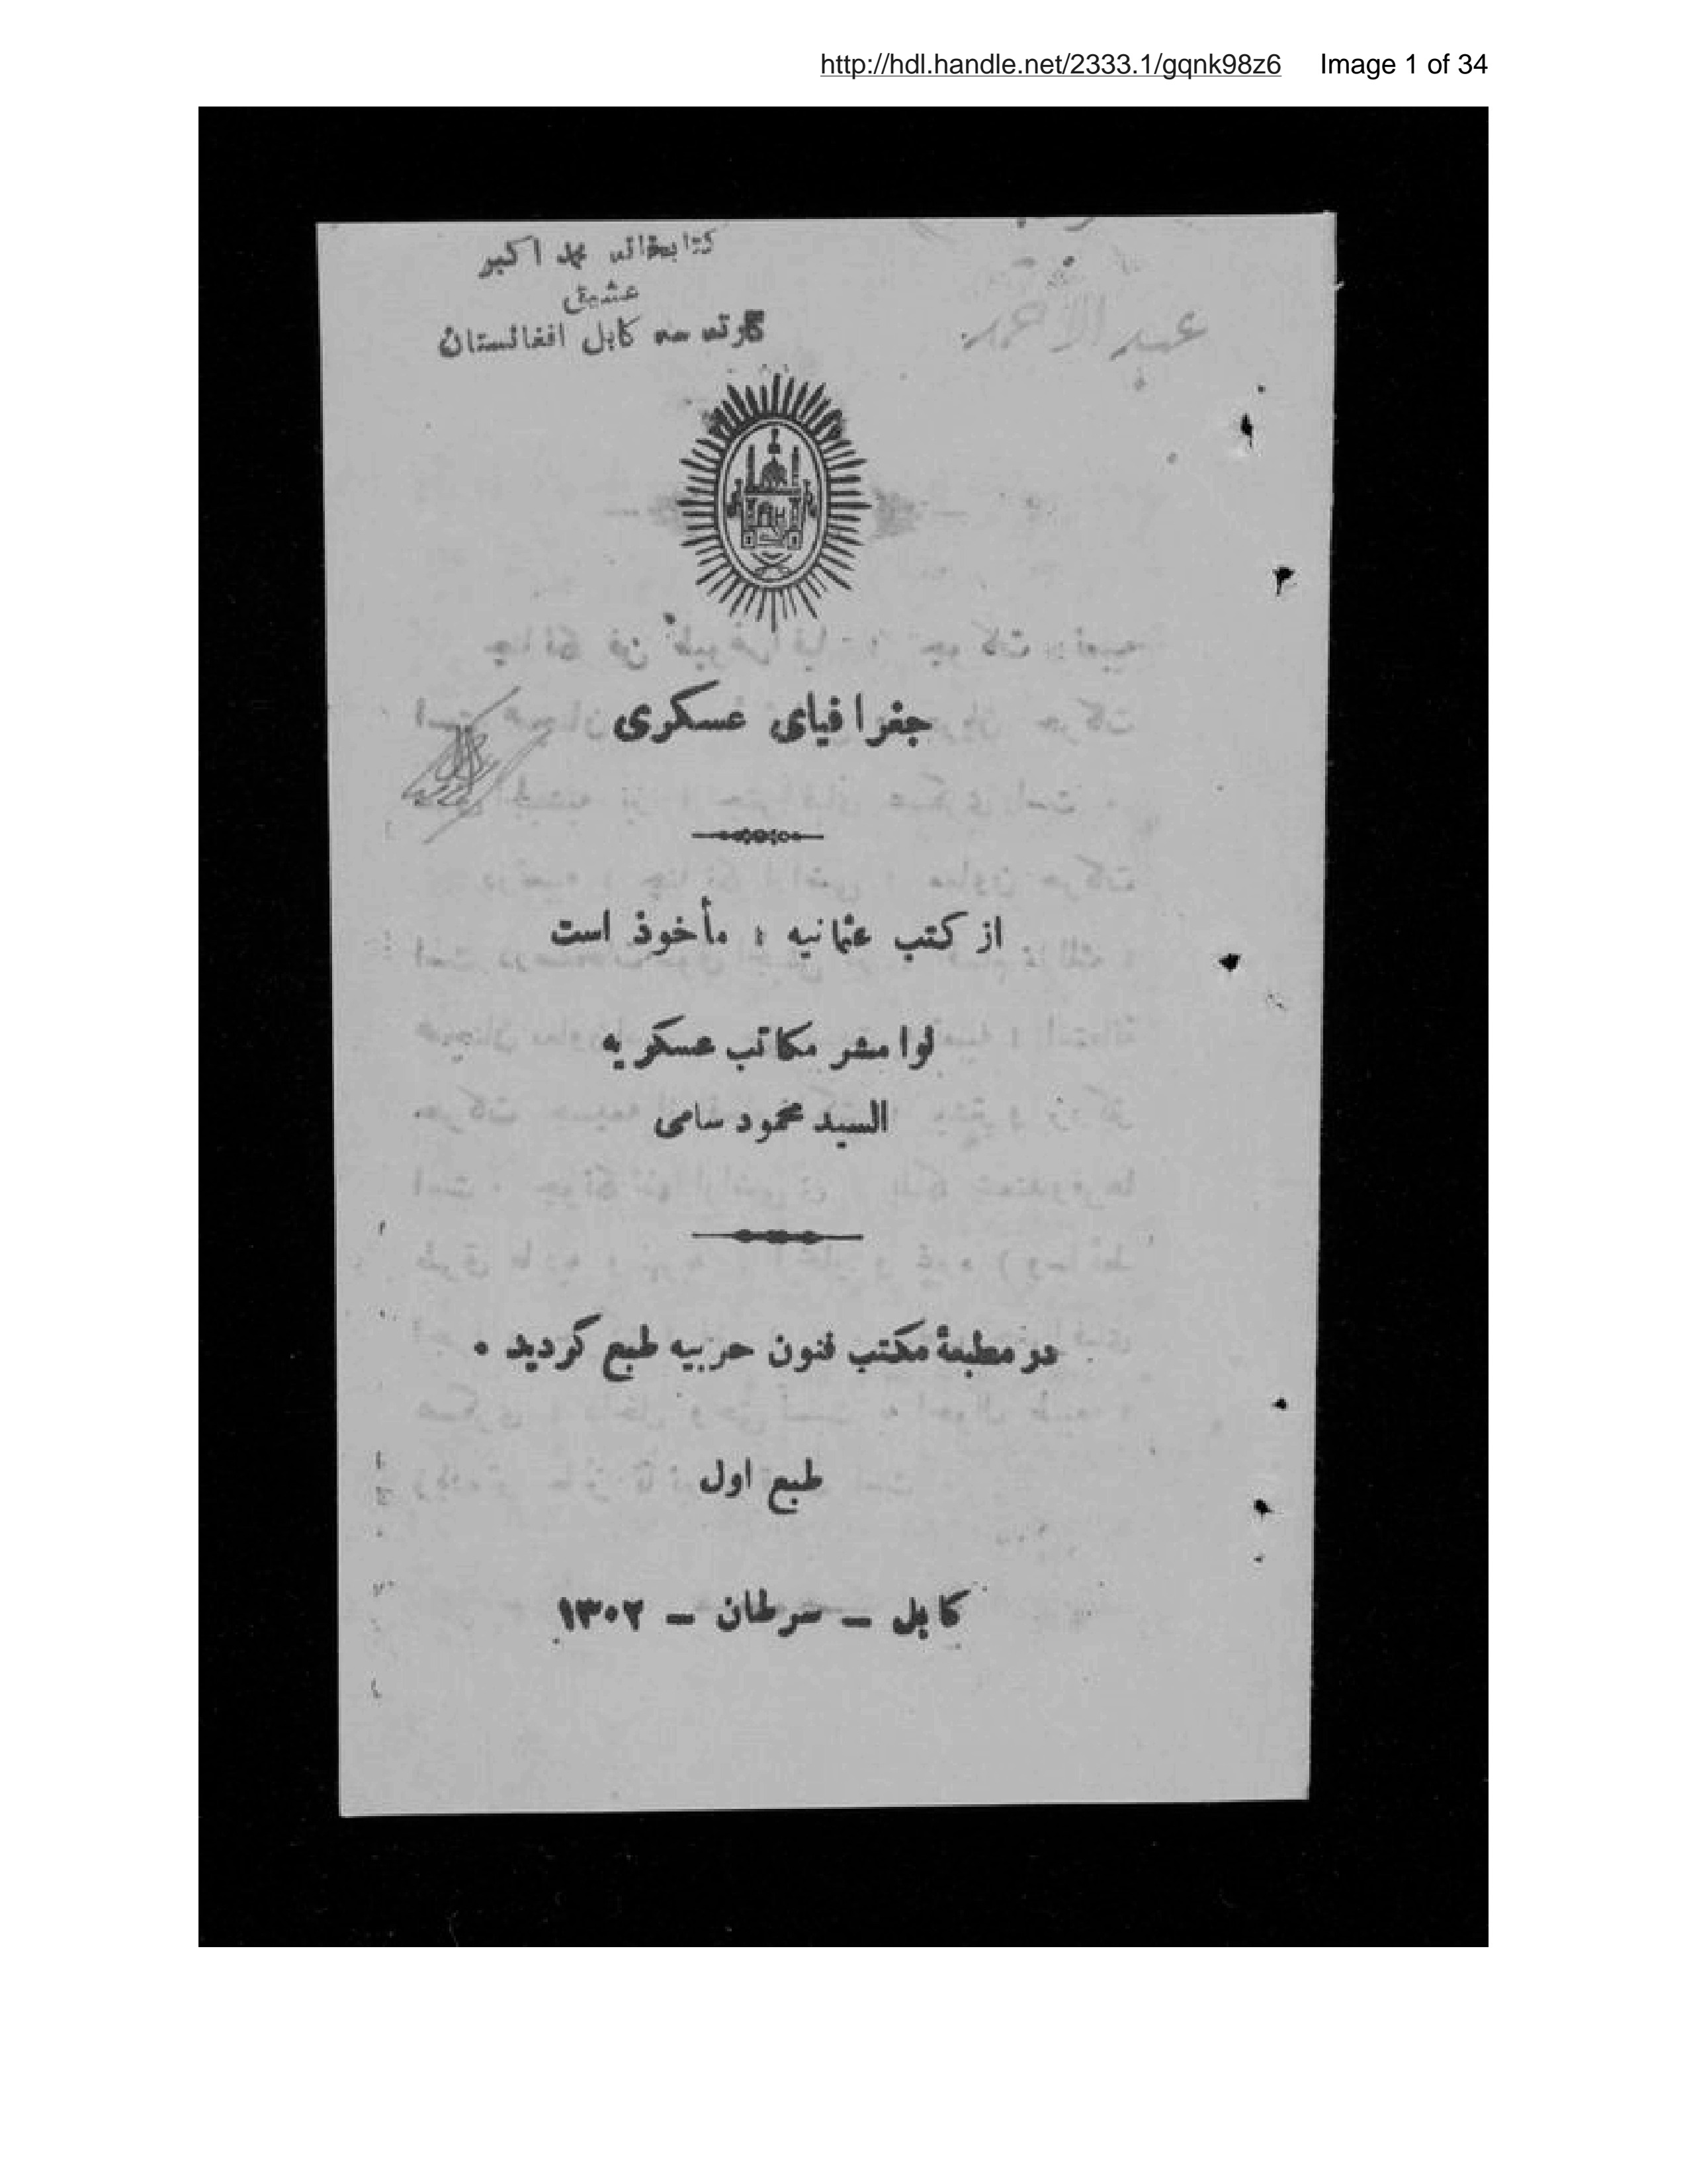 http://hdl.handle.net/2333.1/gqnk98z6 Image 1 of 34
کتابخانه محمد اکبر
عشیق
کارته سه کابل افغانستان
جغرافیای عسکری
از کتب عثمانیه ؛ مأخوذ است
لوا مشر مکاتب عسکریه
السید محمود سامی
در مطبعهٔ مکتب فنون حربیه طبع گردید ۰
طبع اول
کابل — سرطان — ۱۳۰۲